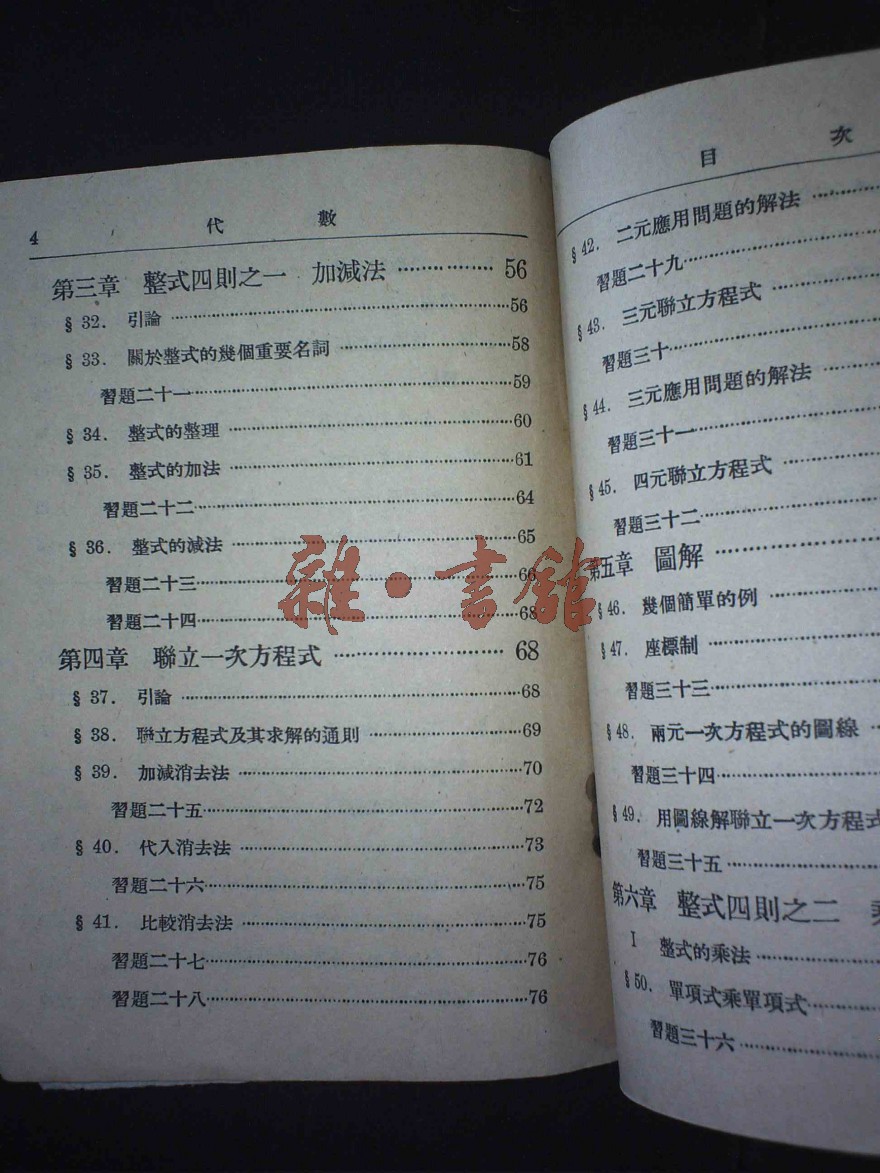 4 代 數
第三章 整式四則之一 加減法 …………… 56
§ 32. 引論 ……………56
§ 33. 關於整式的幾個重要名詞 ……………58
習題二十一……………59
§ 34. 整式的整理 ……………60
§ 35. 整式的加法 ……………61
習題二十二……………64
§ 36. 整式的減法 ……………65
習題二十三……………66
習題二十四……………68
第四章 聯立一次方程式 …………… 68
§ 37. 引論 ……………68
§ 38. 聯立方程式及其求解的通則 ……………69
§ 39. 加減消去法 ……………70
習題二十五……………72
§ 40. 代入消去法 ……………73
習題二十六……………75
§ 41. 比較消去法 ……………75
習題二十七……………76
習題二十八……………76
目 次
§ 42. 二元應用問題的解法 ……
習題二十九……………
§ 43. 三元聯立方程式 ……………
習題三十……………
§ 44. 三元應用問題的解法 ……
習題三十一……………
§ 45. 四元聯立方程式 ……………
習題三十二……………
第五章 圖解 ……………
§ 46. 幾個簡單的例 ……………
§ 47. 座標制 ……………
習題三十三……………
§ 48. 兩元一次方程式的圖線 …
習題三十四……………
§ 49. 用圖線解聯立一次方程式
習題三十五……………
第六章 整式四則之二
I 整式的乘法 ……………
§ 50. 單項式乘單項式……………
習題三十六……………
雜·書館